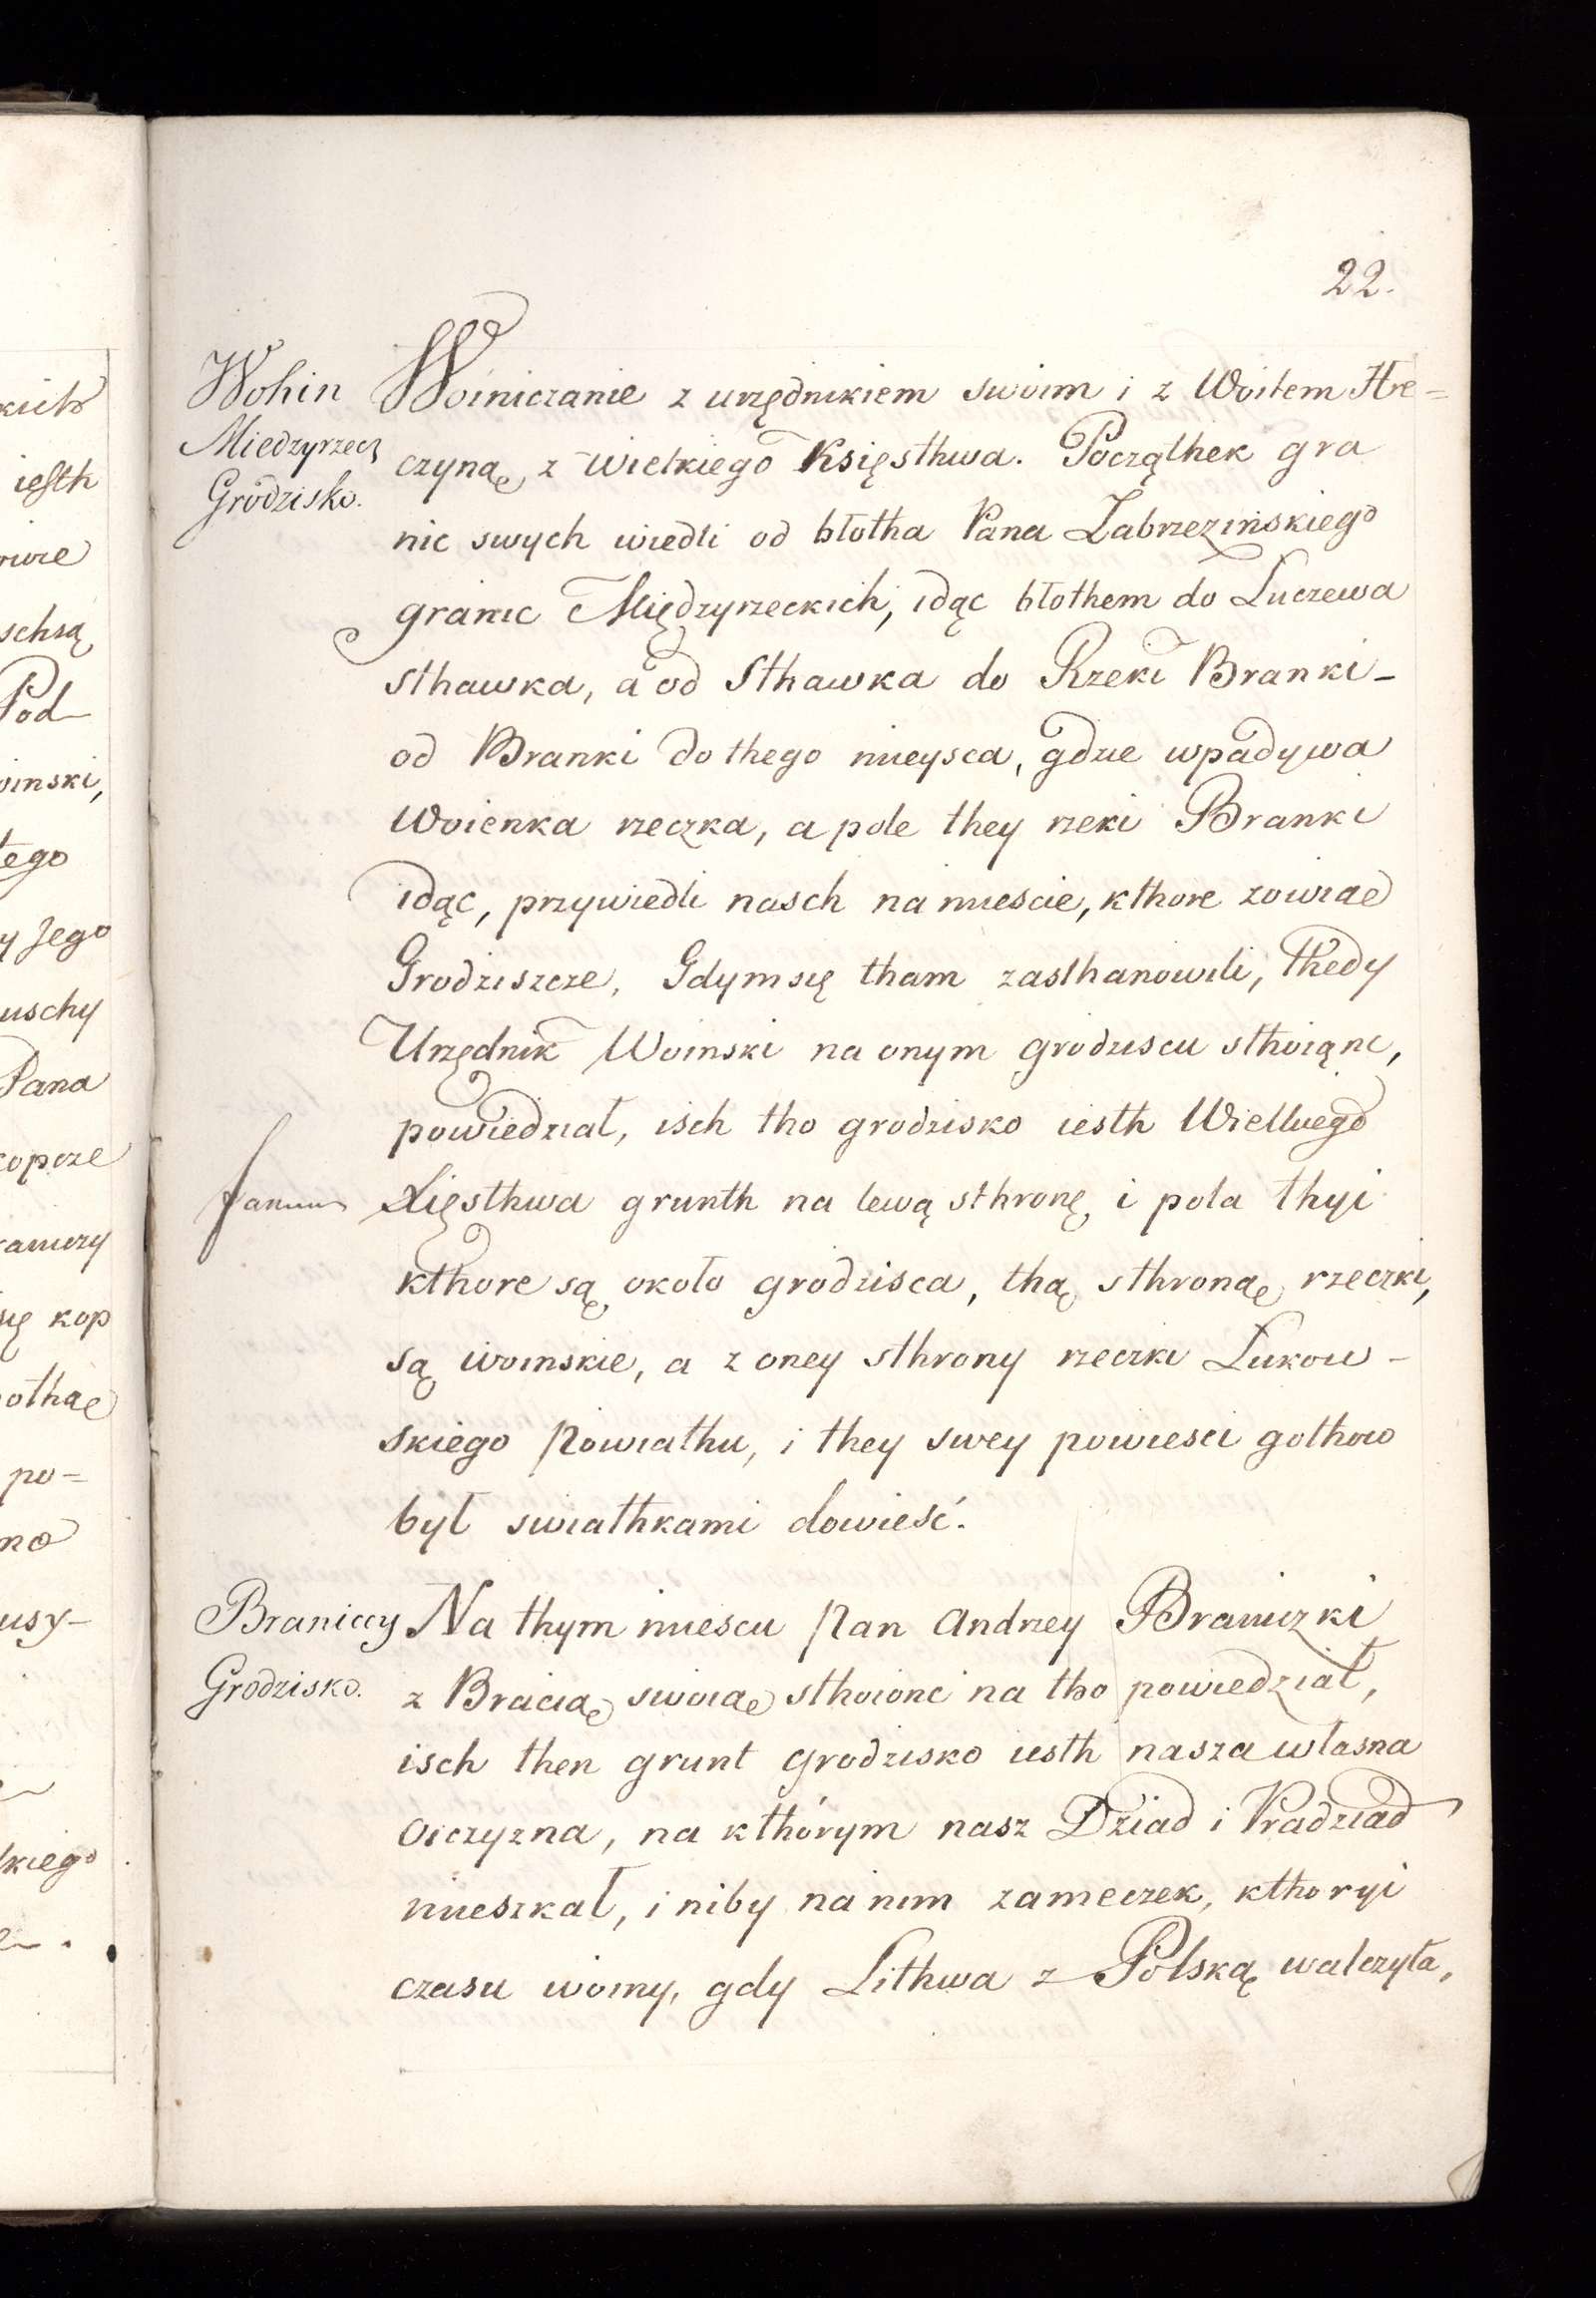 22.
Wohin
Miedzyrzecz
Grodzisko.
Woiniczanie z urzędnikiem swoim i z Woitem Hre=
czynąe z Wielkiego Księsthwa. Począthek gra
nic swych wiedli od błotha Pana Zabrzezińskiego
granic Międzyrzeckich, idąc błothem do Luczewa
sthawka, a od Sthawka do Rzeki Branki –
od Branki do thego mieysca, gdzie wpadywa
Woienka rzeczka, a pole they rzeki Branki
idąc, przywiedli nasch na miescie, kthore zowiae
Grodziszcze, Gdym się tham zasthanowili, thedy
Urzędnik Woinski na onym grodziscu sthoiąnc,
powiedział, isch tho grodzisko iesth Wielkiego
Xięsthwa grunth na lewą sthronę, i pola thyi
kthore są około grodzisca, thą sthronąe rzeczki,
są woinskie, a z oney sthrony rzeczki Lukow –
skiego Powiathu, i they swey powiesci gothow
był swiathkami dowieść.
Braniccy
Grodzisko.
Na thym miescu Pan Andrzey Braniczki
z Braciąe swoiae sthoionc na tho powiedział,
isch then grunt grodzisko iesth nasza własna
oiczyzna, na kthórym nasz Dziad i Pradziad
mieszkał, i niby na nim zameczek, kthoryi
czasu woiny, gdy Lithwa z Polską walczyła,
kich
iesth
schsą
Pod
oinski,
tego
y Jego
uschy
Pana
kopcze
się kop
othae
po=
no
usy–
kiego